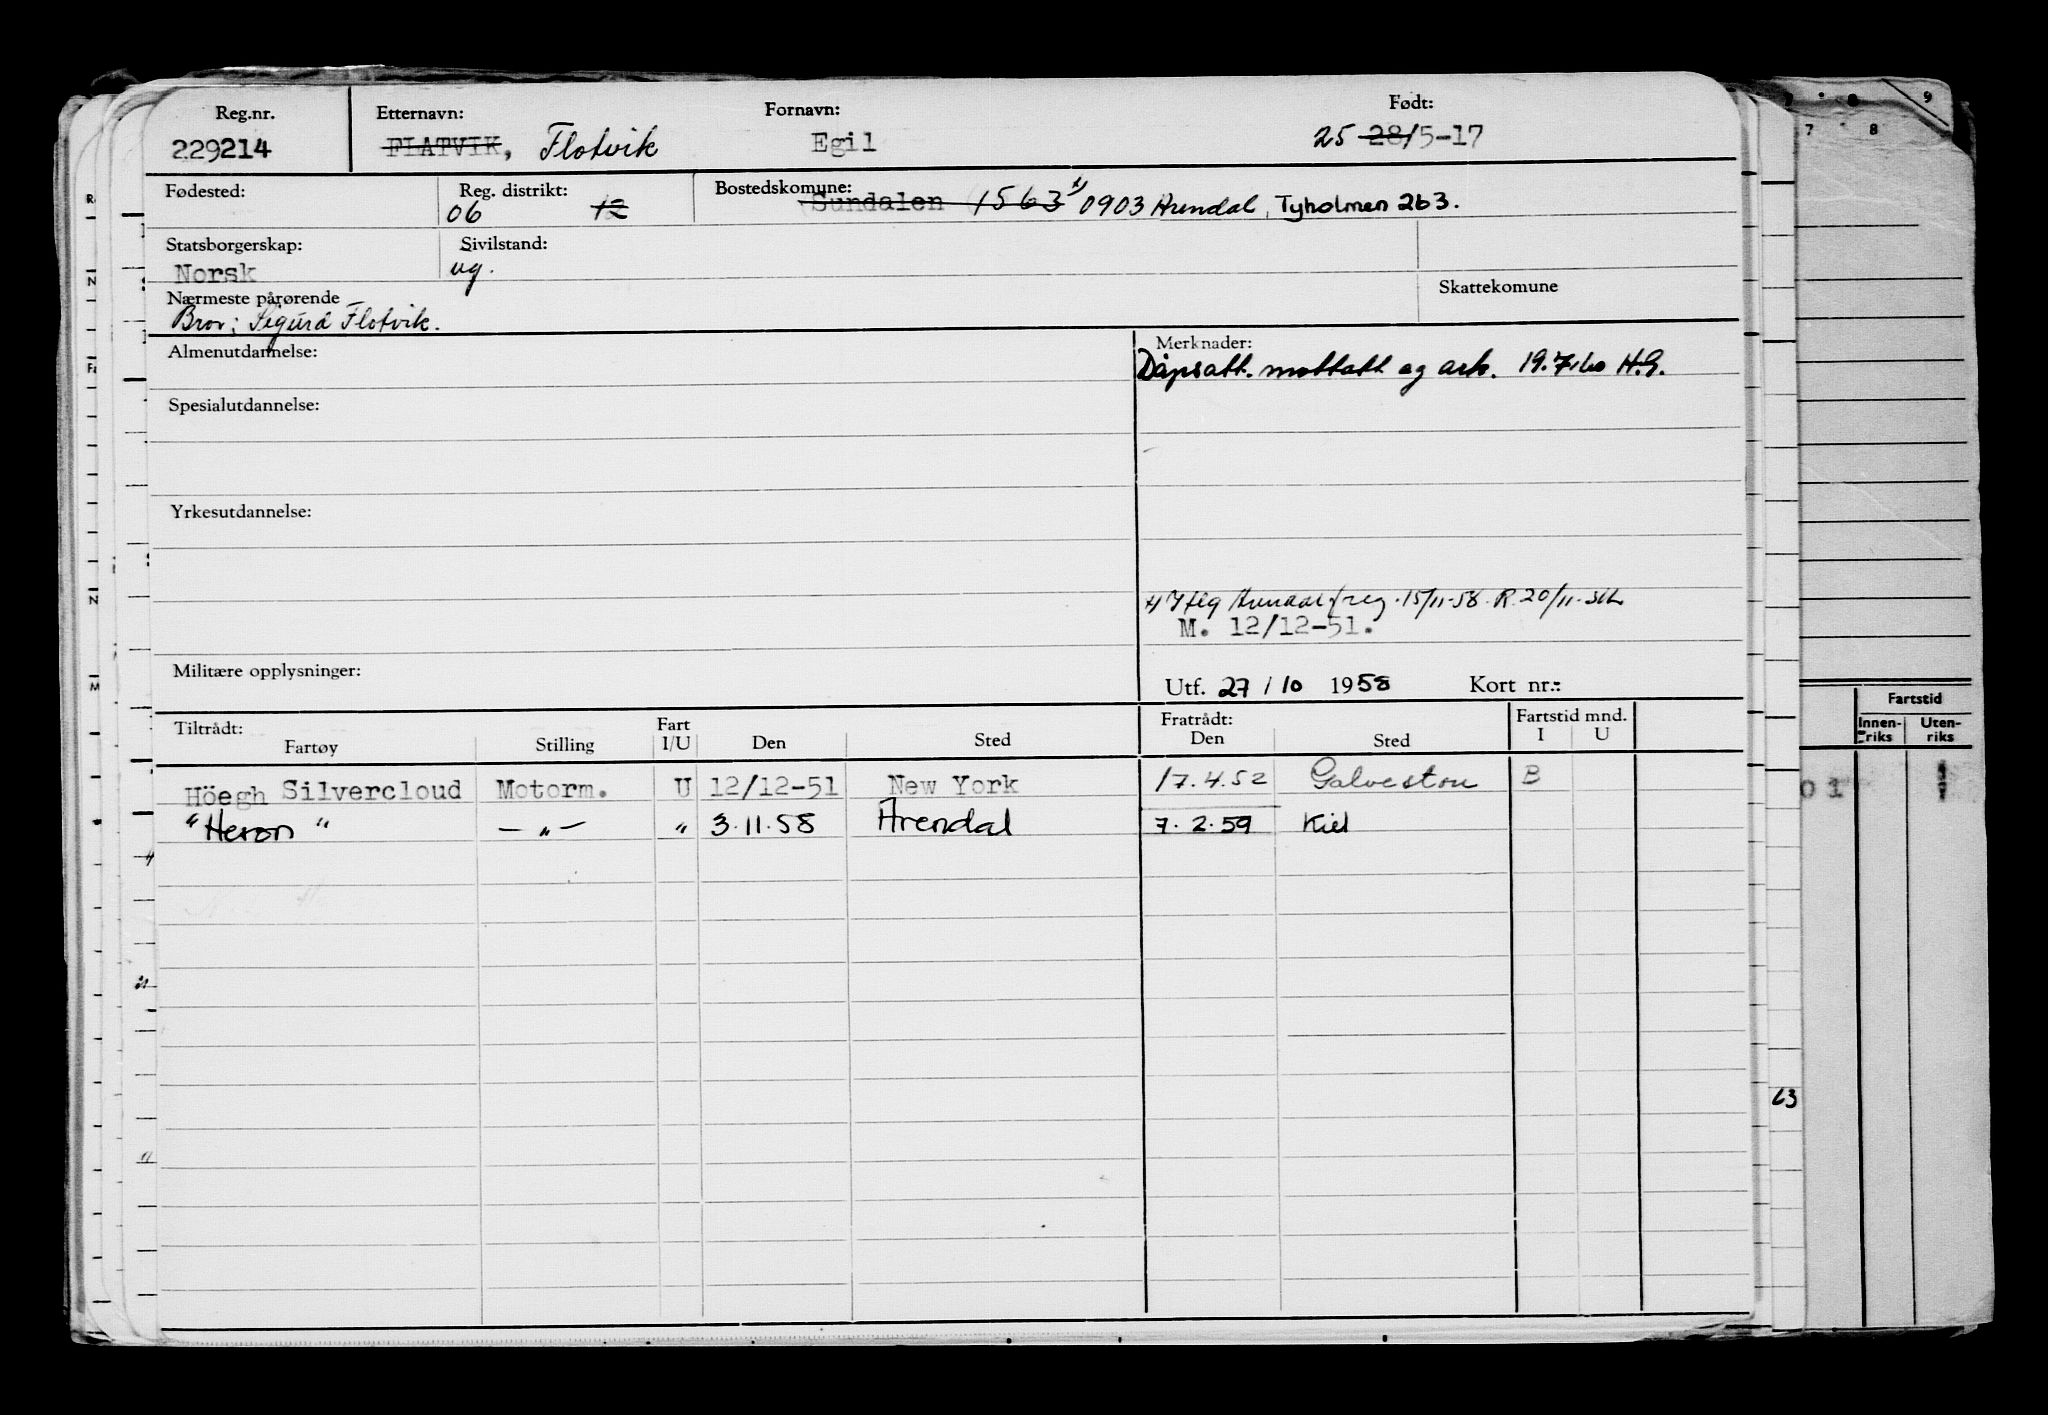 Reg.nr. Etternavn: Fornavn: Født:
229214 FLATVIK, Flotvik Egil 25 28/5-17
Fødested: Reg. distrikt: Bostedskomune:
06 12 Sundalen 1563 x) 0903 Arendal, Tyholmen 2b3.
Statsborgerskap: Sivilstand:
Norsk ug.
Nærmeste pårørende Skattekomune
Bror; Sigurd Flotvik.
Almenutdannelse: Merknader:
Dåpsatt. mottatt og ark. 19.7.60 H.G.
Spesialutdannelse:
Yrkesutdannelse:
Iflg Arendal f.reg. 15/11-58. R. 20/11-
M. 12/12-51.
Militære opplysninger:
Utf. 27/10 1958 Kort nr.:
Tiltrådt: Fart Fratrådt: Fartstid mnd.
Fartøy Stilling I/U Den Sted Den Sted I U
Höegh Silvercloud Motorm. U 12/12-51 New York 17.4.52 Galveston B
"Heron" — " — " 3.11.58 Arendal 7.2.59 Kiel
9
7 8
Fartstid
Innen-riks Uten-riks
01
63